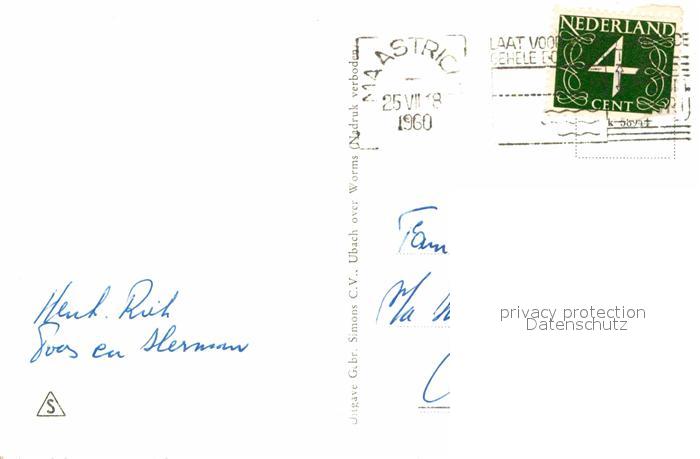 MAASTRICH
25 VII 18
1960
LAAT VOO
GEHELE
NEDERLAND
4
CENT
Uitgave Gebr. Simons C.V., Ubach over Worms (Nadruk verboden)
Fam
p/a
privacy protection
Datenschutz
Henk. Riek
Toos en Herman
S